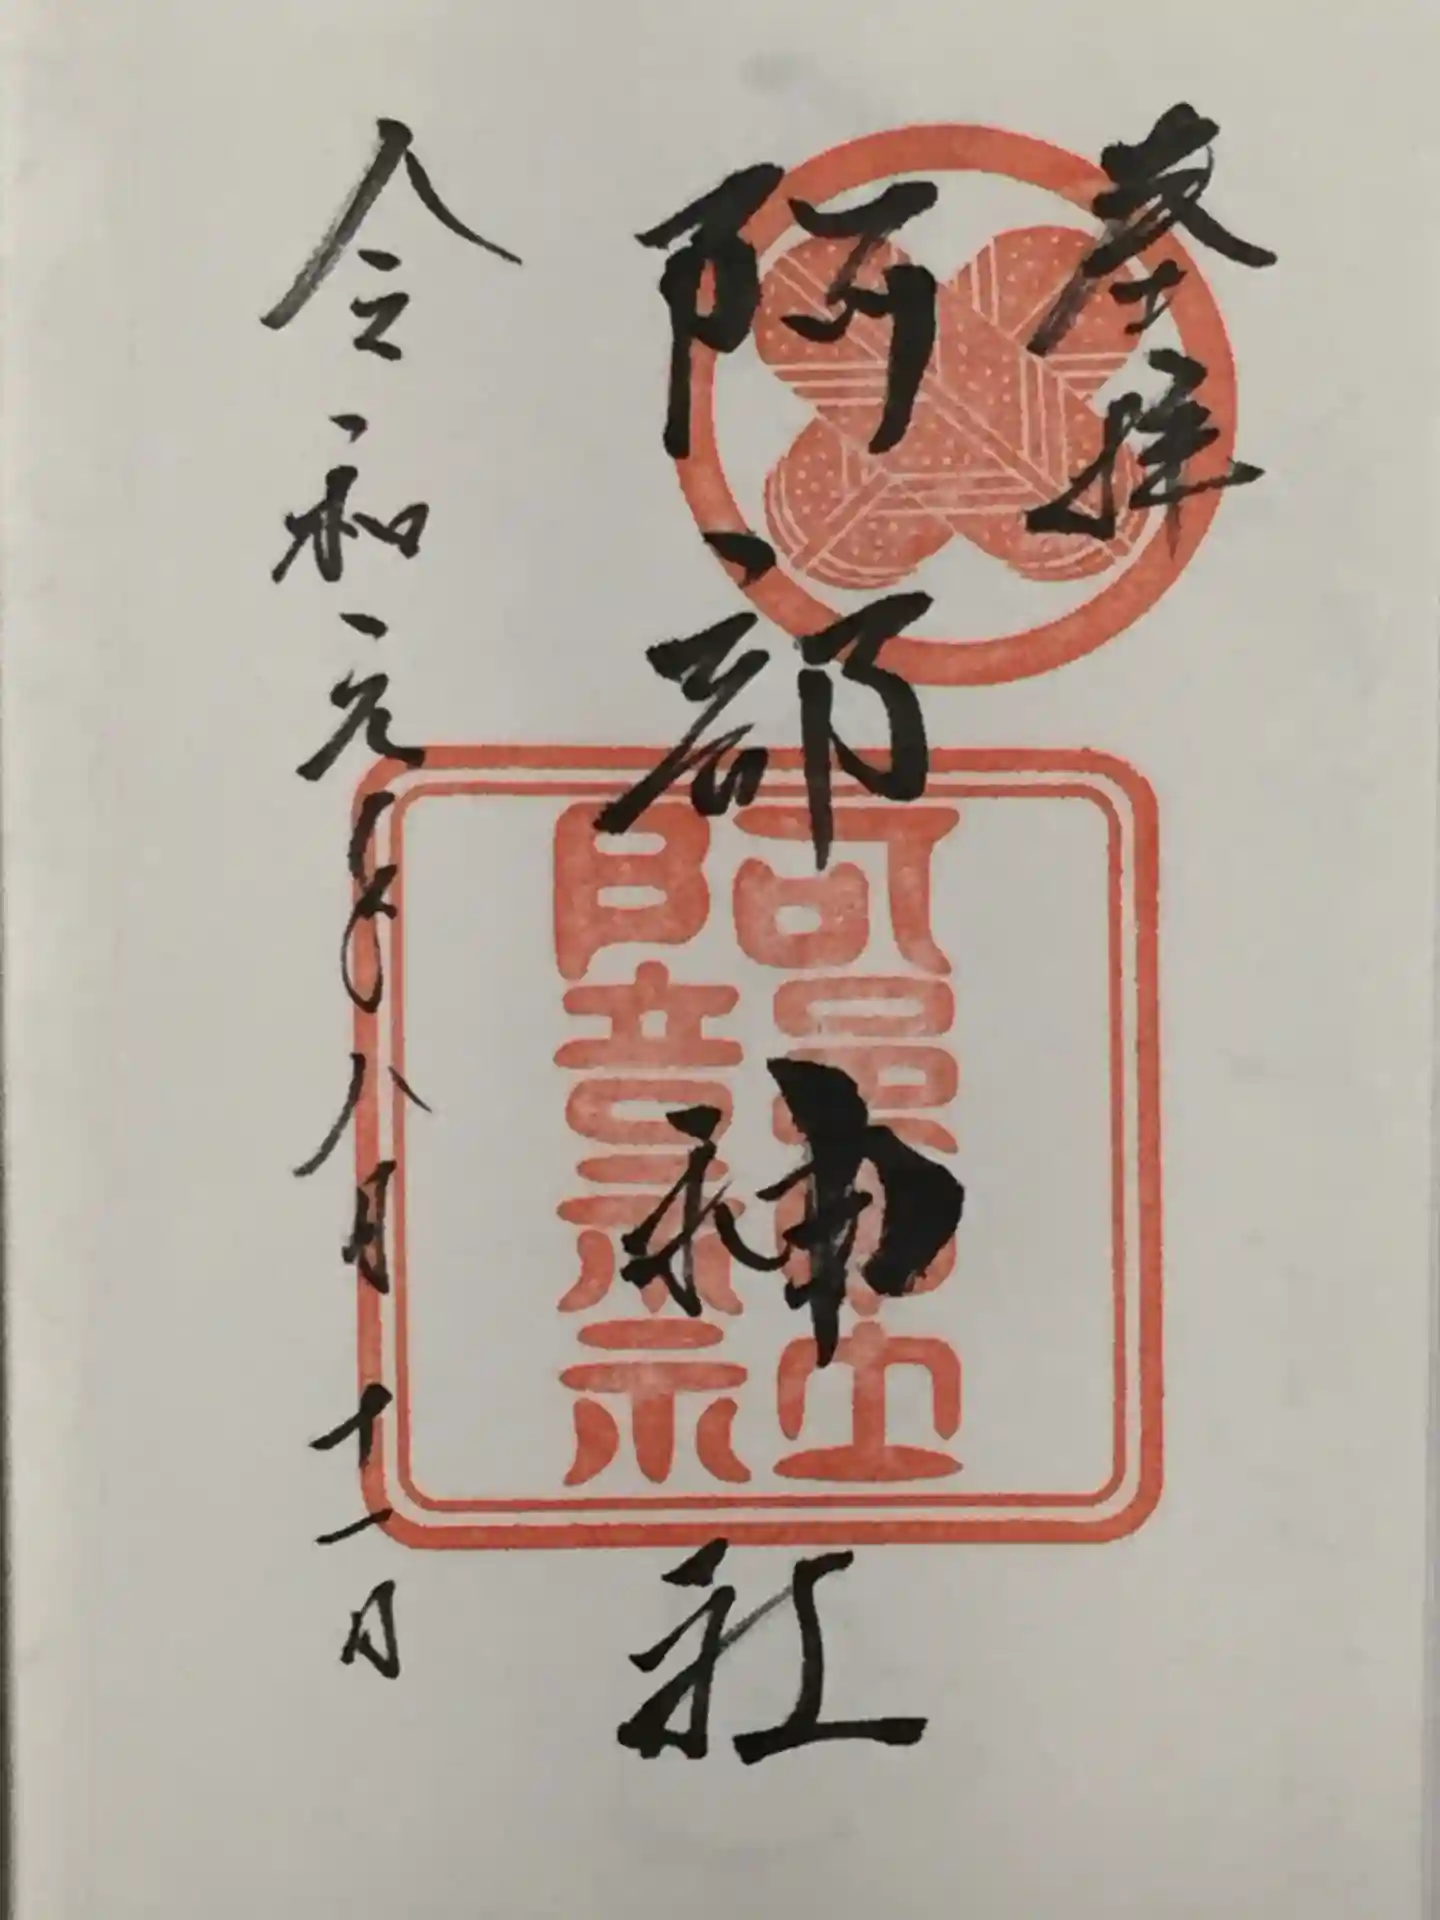 奉拝
阿部神社
令和元年八月十一日
阿部神社